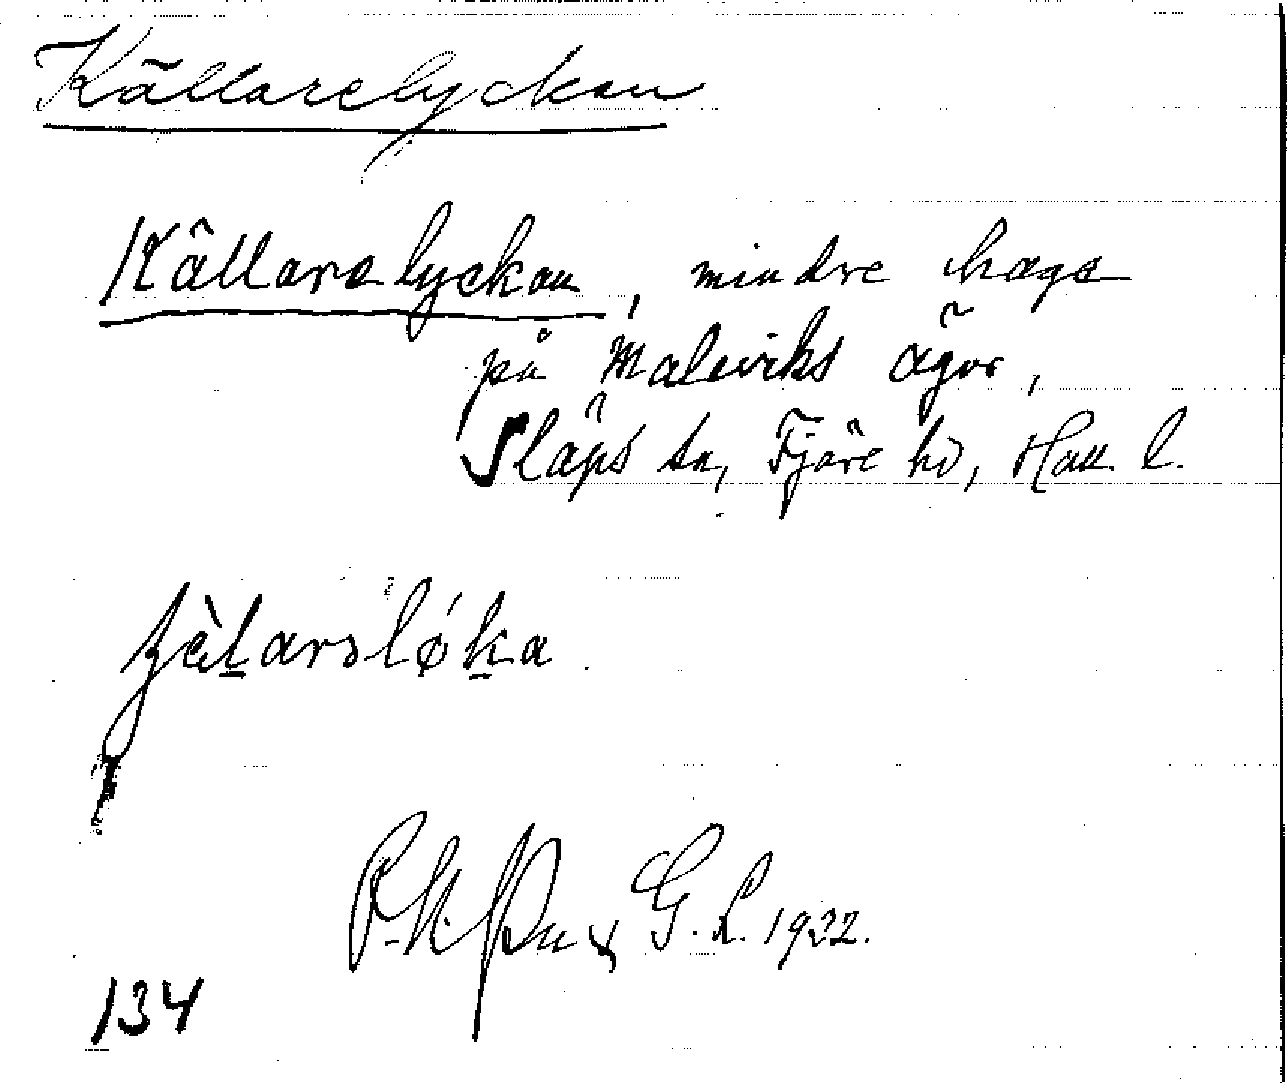 Källarelyckan
Källarelyckan, mindre hage
på Maleviks ägor,
Släps sn, Fjäre hd, Hall. l.
G. L. 1922.
134